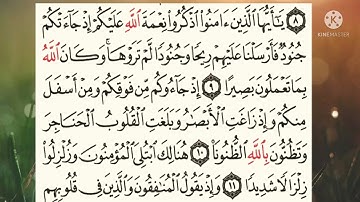 ٨ يَٰٓأَيُّهَا ٱلَّذِينَ ءَامَنُوا۟ ٱذْكُرُوا۟ نِعْمَةَ ٱللَّهِ عَلَيْكُمْ إِذْ جَآءَتْكُمْ
جُنُودٌ فَأَرْسَلْنَا عَلَيْهِمْ رِيحًا وَجُنُودًا لَّمْ تَرَوْهَا ۚ وَكَانَ ٱللَّهُ
بِمَا تَعْمَلُونَ بَصِيرًا ٩ إِذْ جَآءُوكُم مِّن فَوْقِكُمْ وَمِنْ أَسْفَلَ
مِنكُمْ وَإِذْ زَاغَتِ ٱلْأَبْصَٰرُ وَبَلَغَتِ ٱلْقُلُوبُ ٱلْحَنَاجِرَ
وَتَظُنُّونَ بِٱللَّهِ ٱلظُّنُونَا۠ ١٠ هُنَالِكَ ٱبْتُلِىَ ٱلْمُؤْمِنُونَ وَزُلْزِلُوا۟
زِلْزَالًا شَدِيدًا ١١ وَإِذْ يَقُولُ ٱلْمُنَٰفِقُونَ وَٱلَّذِينَ فِى قُلُوبِهِم
KINEMASTER